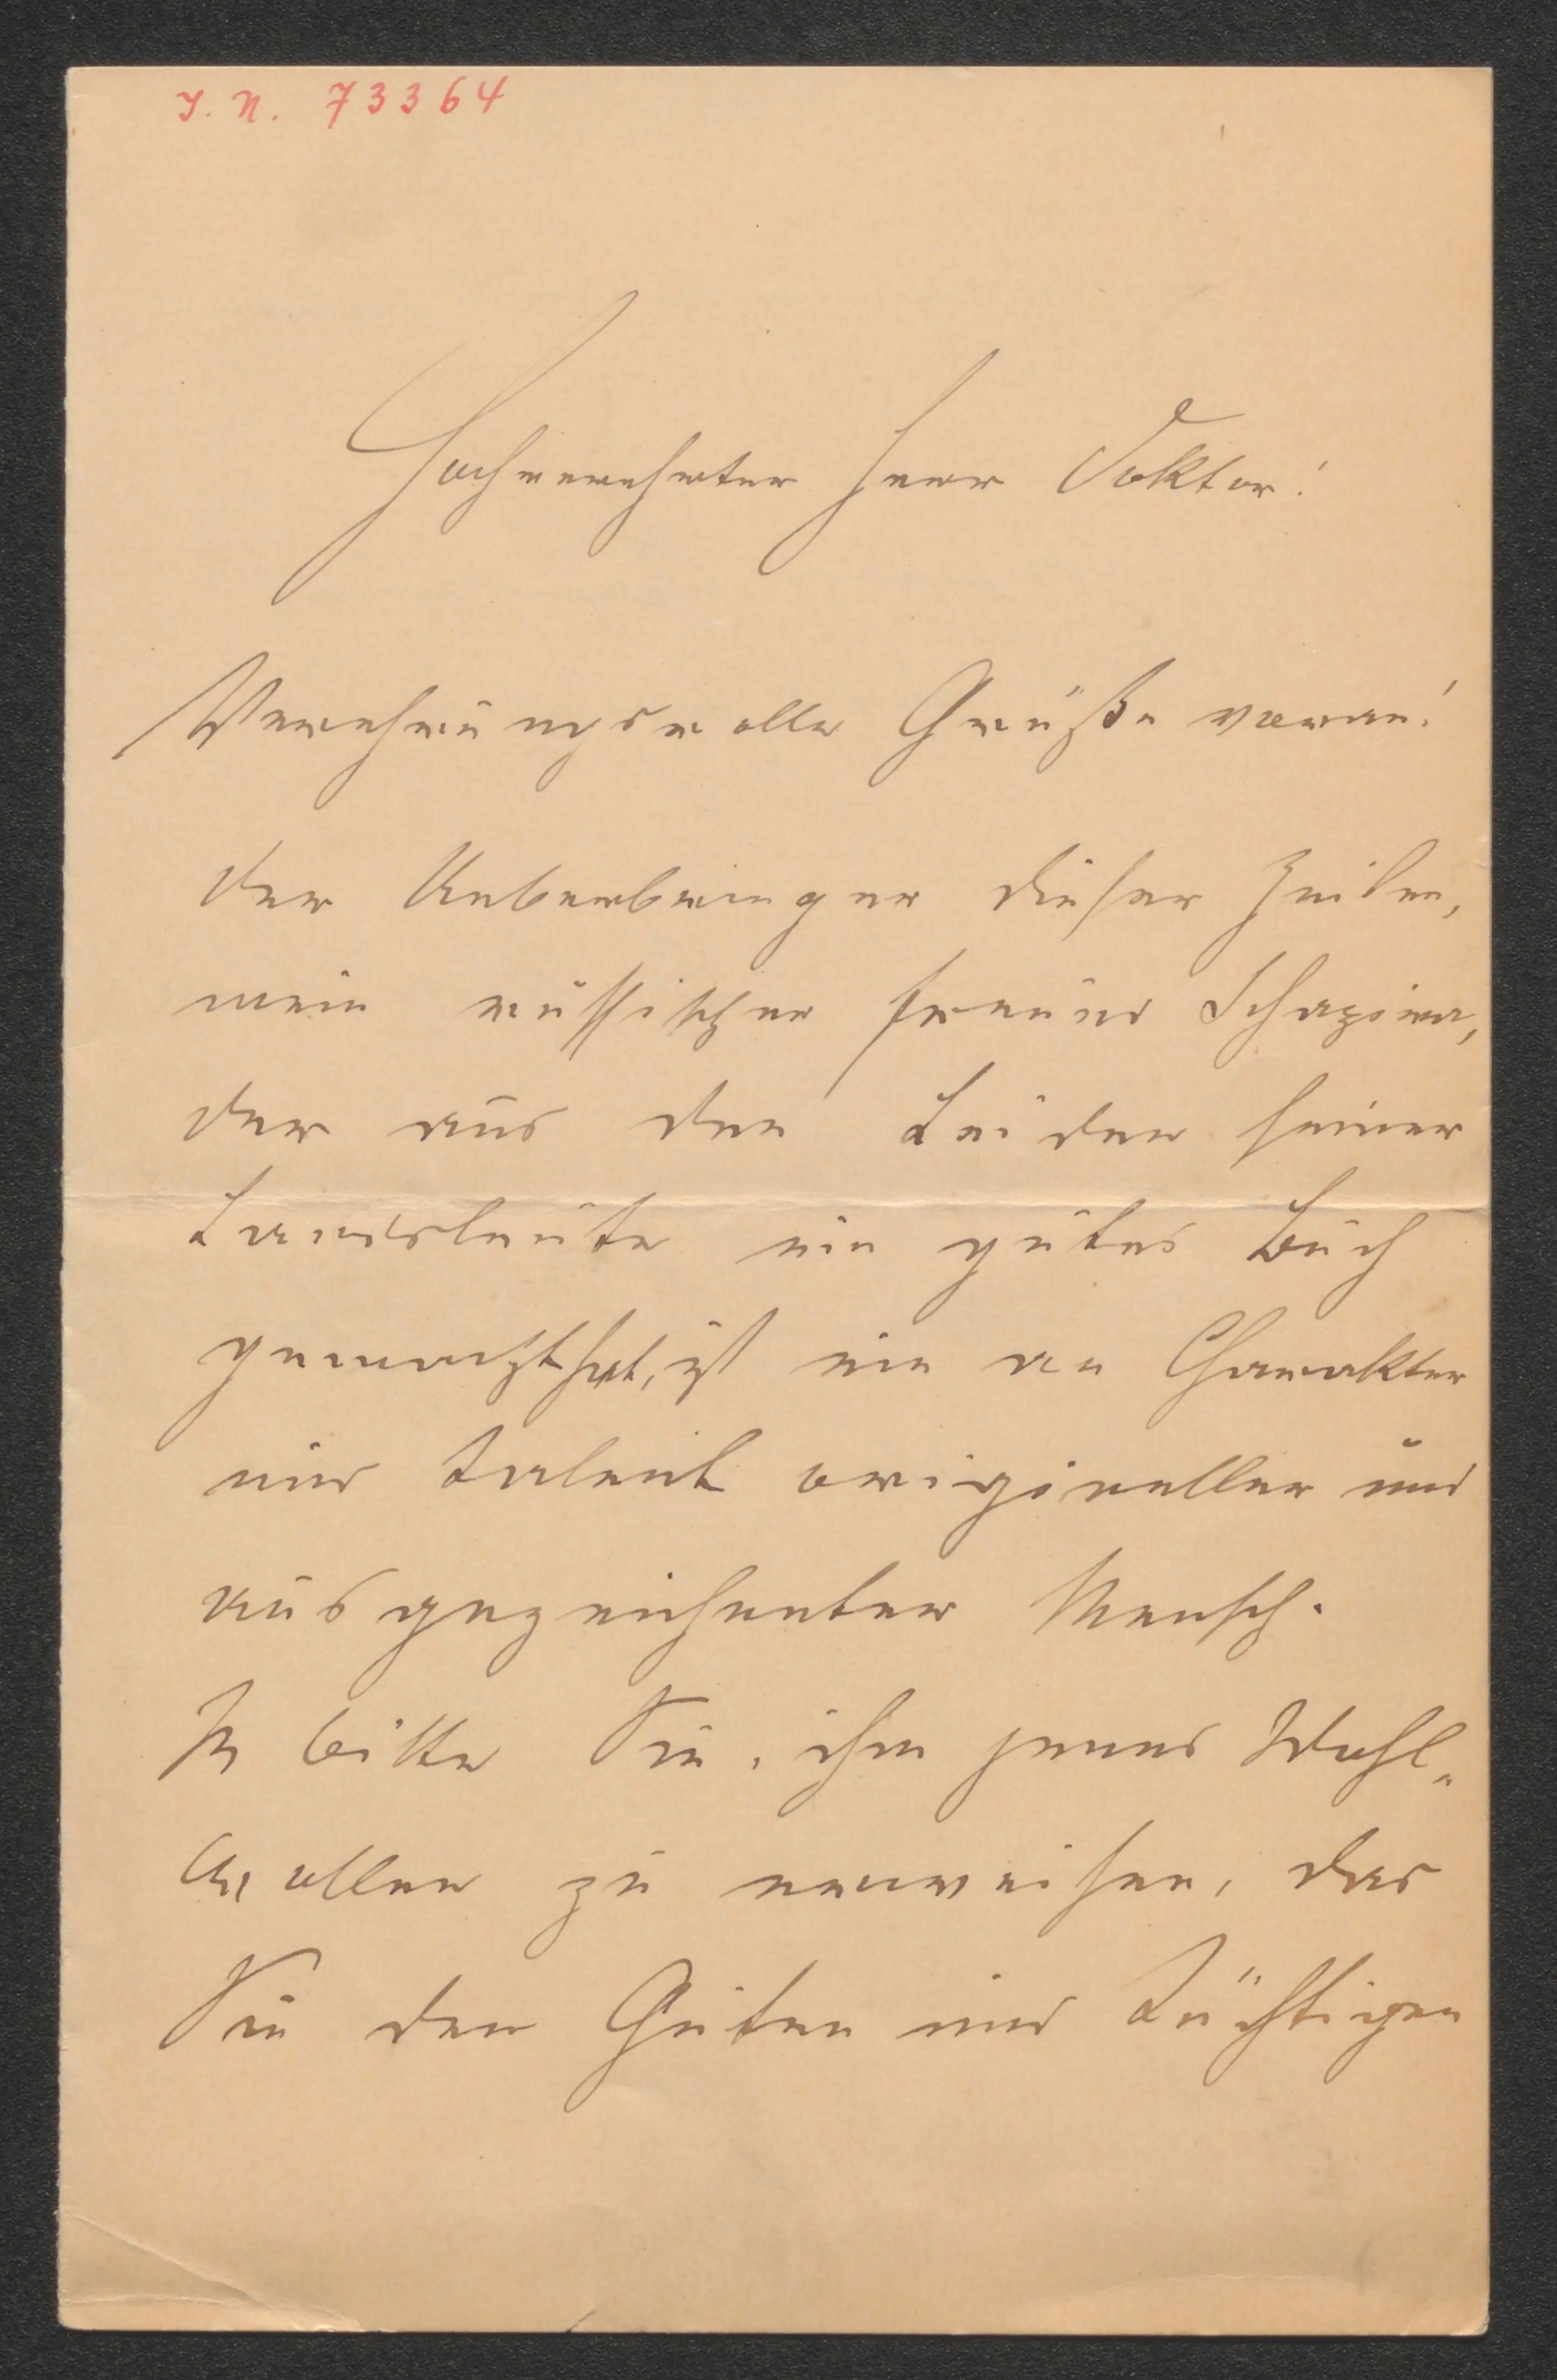 I. N. 73364
Hochverehrter Herr Doktor!
Verehrungsvolle Grüße voran!
Der Ueberbringer dieser Zeilen,
mein russischer Freund Schapira,
der aus den Leiden seiner
Landsleute ein gutes Buch
gemacht hat, ist ein an Charakter
und Talent origineller und
ausgezeichneter Mensch.
Ich bitte Sie, ihm jenes Wohl-
wollen zu erweisen, das
Sie den Guten und Tüchtigen